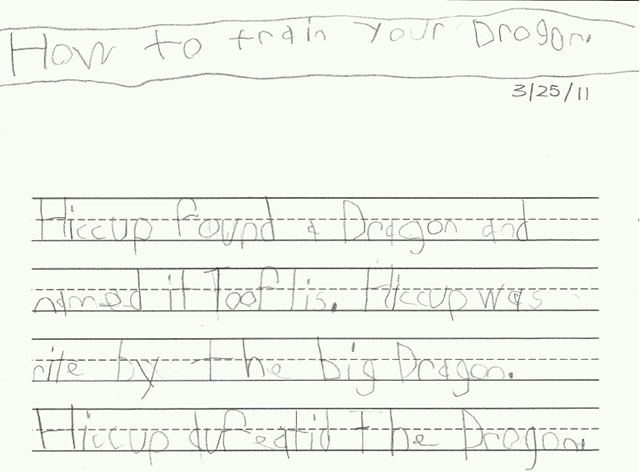 How to train your Dragon.
3/25/11
Hiccup found a Dragon and
named it Toof lis. Hiccup was
rite by the big Dragon.
Hiccup dufeatid the Dragon.